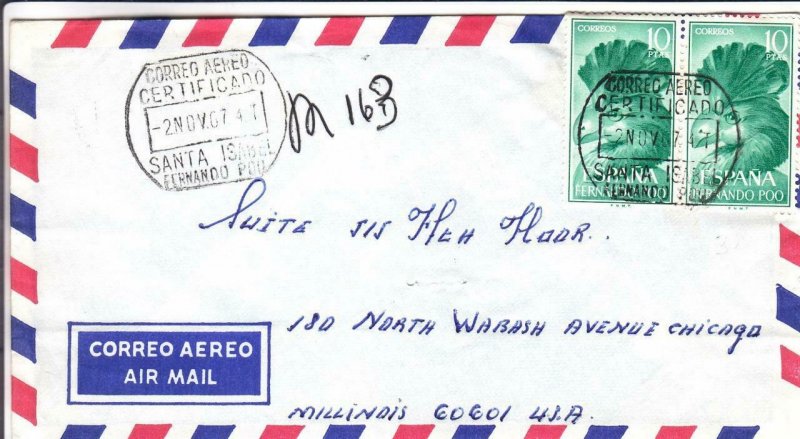 CORREO AEREO
CERTIFICADO
-2NOV.67 4 T
SANTA ISABEL
FERNANDO POO
M 163
CORREOS 10
PTAS
ESPAÑA
FERNANDO POO
F.N.M.T
CORREOS 10
PTAS
ESPAÑA
FERNANDO POO
F.N.M.T
CORREO AEREO
CERTIFICADO
-2NOV.67 4 T
SANTA ISABEL
FERNANDO POO
SUITE 515 Hth Hoor.
180 NORTH WABASH AVENUE CHICAGO
MILLINOIS 60601 U.S.A.
CORREO AEREO
AIR MAIL